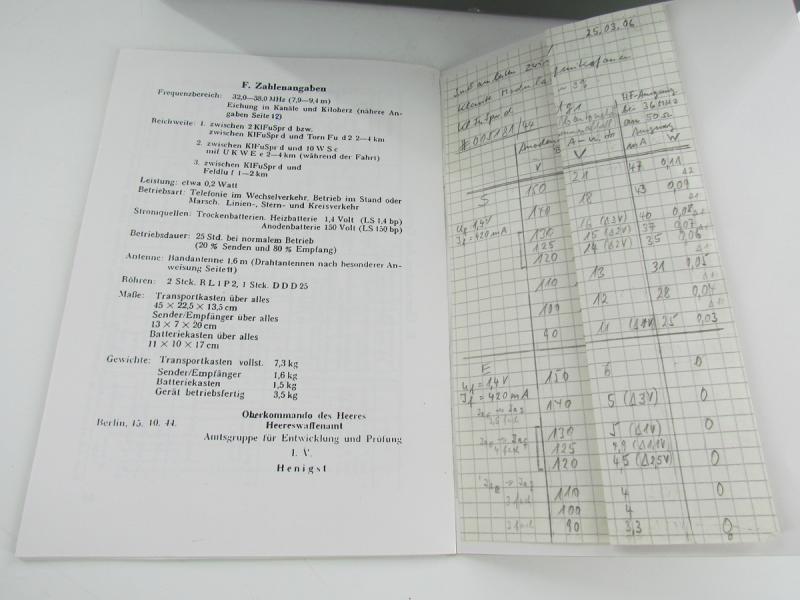 F. Zahlenangaben
Frequenzbereich: 32,0—38,0 MHz (7,9—9,4 m)
Eichung in Kanäle und Kiloherz (nähere An-
gaben Seite 12)
Reichweite: 1. zwischen 2 KlFuSpr d bzw.
zwischen KlFuSpr d und Torn Fu d 2 2—4 km
2. zwischen KlFuSpr d und 10 W S c
mit U K W E e 2—4 km (während der Fahrt)
3. zwischen KlFuSpr d und
Feldfu f 1—2 km
Leistung: etwa 0,2 Watt
Betriebsart: Telefonie im Wechselverkehr, Betrieb im Stand oder
Marsch. Linien-, Stern- und Kreisverkehr
Stromquellen: Trockenbatterien. Heizbatterie 1,4 Volt (LS 1,4 bp)
Anodenbatterie 150 Volt (LS 150 bp)
Betriebsdauer: 25 Std. bei normalem Betrieb
(20 % Senden und 80 % Empfang)
Antenne: Bandantenne 1,6 m (Drahtantennen nach besonderer An-
weisung Seite 11)
Röhren: 2 Stck. R L 1 P 2, 1 Stck. D D D 25
Maße: Transportkasten über alles
45 × 22,5 × 13,5 cm
Sender/Empfänger über alles
13 × 7 × 20 cm
Batteriekasten über alles
11 × 10 × 17 cm
Gewichte: Transportkasten vollst. 7,3 kg
Sender/Empfänger 1,6 kg
Batteriekasten 1,5 kg
Gerät betriebsfertig 3,5 kg
Oberkommando des Heeres
Heereswaffenamt
Berlin, 15. 10. 44.
Amtsgruppe für Entwicklung und Prüfung
I. V.
Henigst
25.03.06
KlFuSpr d
HF-Ausgang
bei 36 MHz
an 50 Ω
V mA W
S 150 21 47 0,11
140 18 43 0,09
Uf 1,4V
If = 420 mA
130 16 (Δ3V) 40 0,08
125 15 (Δ2V) 37 0,07
120 14 (Δ2V) 35 0,06
110 13 31 0,05
100 12 28 0,04
90 11 25 0,03
E
Uf = 1,4V 150 6 0
If = 420 mA
140 5 (Δ3V) 0
130 5 (Δ1V)
125 4,9 (Δ1,1V)
120 4,5 (Δ2,5V) 0
110 4 0
100 4
90 3,3 0